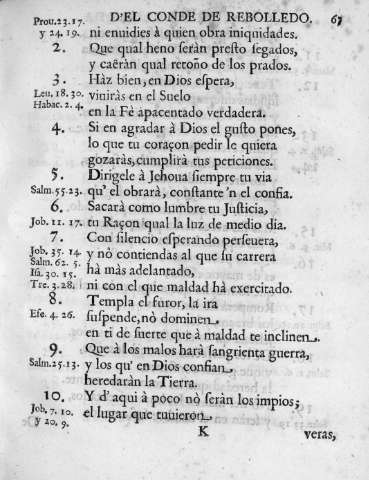 D'EL CONDE DE REBOLLEDO. 67
Prou.23.17.
y 24. 19. ni enuidies à quien obra iniquidades.
2. Que qual heno ſeràn preſto ſegados,
y caêràn qual retoño de los prados.
3. Hàz bien, en Dios eſpera,
Leu. 18. 30. viuiràs en el Suelo
Habac. 2. 4. en la Fè apacentado verdadera.
4. Si en agradar à Dios el guſto pones,
lo que tu coraçon pedir le quiera
gozaràs, cumplirà tus peticiones.
5. Dirigele à Jehoua ſiempre tu via
Salm.55.23. qu' el obrarà, conſtante 'n el confia.
6. Sacarà como lumbre tu Juſticia,
Job. 11. 17. tu Raçon qual la luz de medio dia.
7. Con ſilencio eſperando perſeuera,
Job. 35. 14. y nò contiendas al que ſu carrera
Salm. 62. 5.
Iſa. 30. 15. hà màs adelantado,
Tre. 3. 28. ni con el que maldad hà exercitado.
8. Templa el furor, la ira
Efe. 4. 26. ſuſpende, nò dominen
en ti de ſuerte que à maldad te inclinen.
9. Que à los malos harà ſangrienta guerra,
Salm.25.13. y los qu' en Dios confian
heredaràn la Tierra.
10. Y d' aqui à poco nò ſeràn los impios;
Job. 7. 10.
y 20. 9. el lugar que tuuieron
K veras,